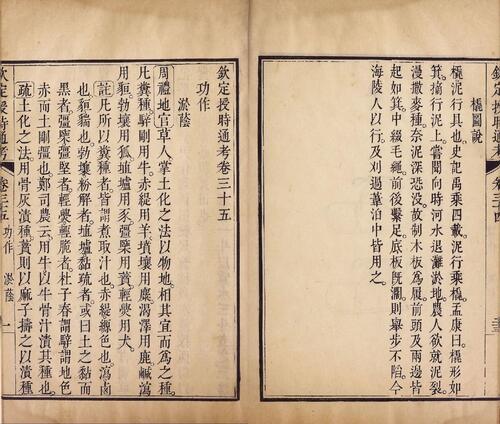 欽定授時通考 卷三十四
橇圖說
橇泥行具也。史記禹乘四載泥行乘橇。孟康曰。橇形如
箕。擿行泥上。嘗聞向時河水退灘淤地。農人欲就泥裂
漫撒麥種。奈泥深恐沒。故制木板為履。前頭及兩邊皆
起如箕。中綴毛繩。前後繫足底。板既濶則舉步不陷。今
海陵人以行。及刈過葦泊中皆用之。
欽定授時通考卷三十五
功作
淤蔭
周禮地官草人掌土化之法以物地。相其宜而為之種。
凡糞種。騂剛用牛。赤緹用羊。墳壤用麋。渴澤用鹿。鹹瀉
用貆。勃壤用狐。埴壚用豕。彊㯺用蕡。輕㶾用犬。
註凡所以糞種者皆謂煮取汁也。赤緹縓色也。瀉鹵
也。貆貒也。勃壤粉解者。埴壚黏疏者。或曰土之黏而
黑者。彊㯺彊堅者。輕㶾輕脆者。杜子春謂騂謂地色
赤而土剛彊也。鄭司農云。用牛以牛骨汁漬其種也。
疏土化之法。用骨灰漬種。蕡則以麻子擣之以漬種
欽定授時通考 卷三十五 功作 淤蔭 一